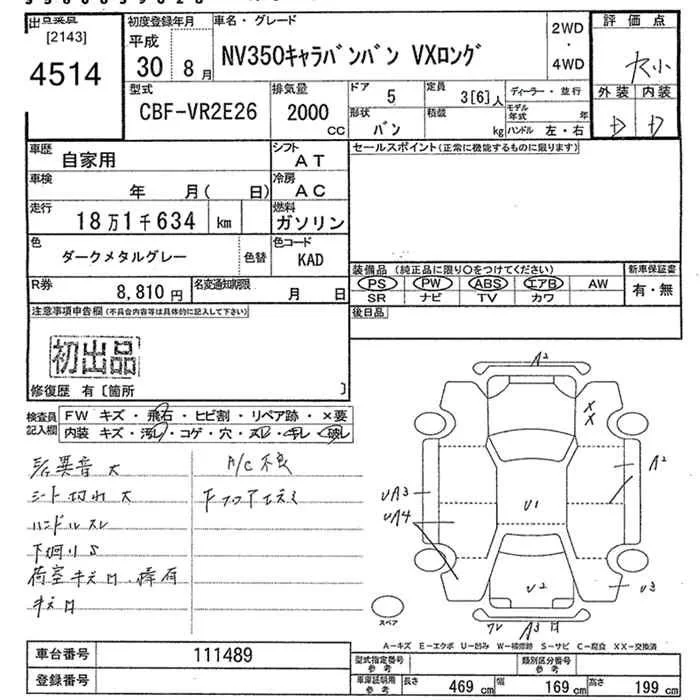 出品票
[2143]
4514
初度登録年月
平成
30 8月
車名・グレード
NV350キャラバンバン VXロング
2WD
・
4WD
評価点
外装 内装
D D
型式
CBF-VR2E26
排気量
2000
CC
ドア
5
定員
3[6]人
ディーラー・並行
形状
バン
積載
kg
モデル年式 年
ハンドル 左・右
車歴
自家用
シフト
AT
セールスポイント(正常に機能するものに限ります)
車検
年 月( 日)
冷房
AC
走行
18万1千634 km
燃料
ガソリン
色
ダークメタルグレー
色替
色コード
KAD
装備品 (純正品に限り○をつけてください)
新車保証書
PS PW ABS エアB AW
有・無
SR ナビ TV カワ
R券
8,810円
名変通知期限
月 日
後日品
注意事項申告欄(不具合内容等は具体的に記入して下さい)
初出品
修復歴 有〔箇所 〕
検査員
記入欄
FW キズ・飛石・ヒビ割・リペア跡・×要
内装 キズ・汚レ・コゲ・穴・スレ・キレ・破レ
A/C不良
シート切れ大
ハンドルスレ
下廻りS
A2
XX
A2
UA3
UA4
U1
U2
U3
A3
スペア
A-キズ E-エクボ U-凹み W-補修跡 S-サビ C-腐食 XX-交換済
車台番号
111489
登録番号
型式指定番号
参考
類別区分番号
参考
車庫証明用
参考
長さ 469cm 幅 169cm 高さ 199cm